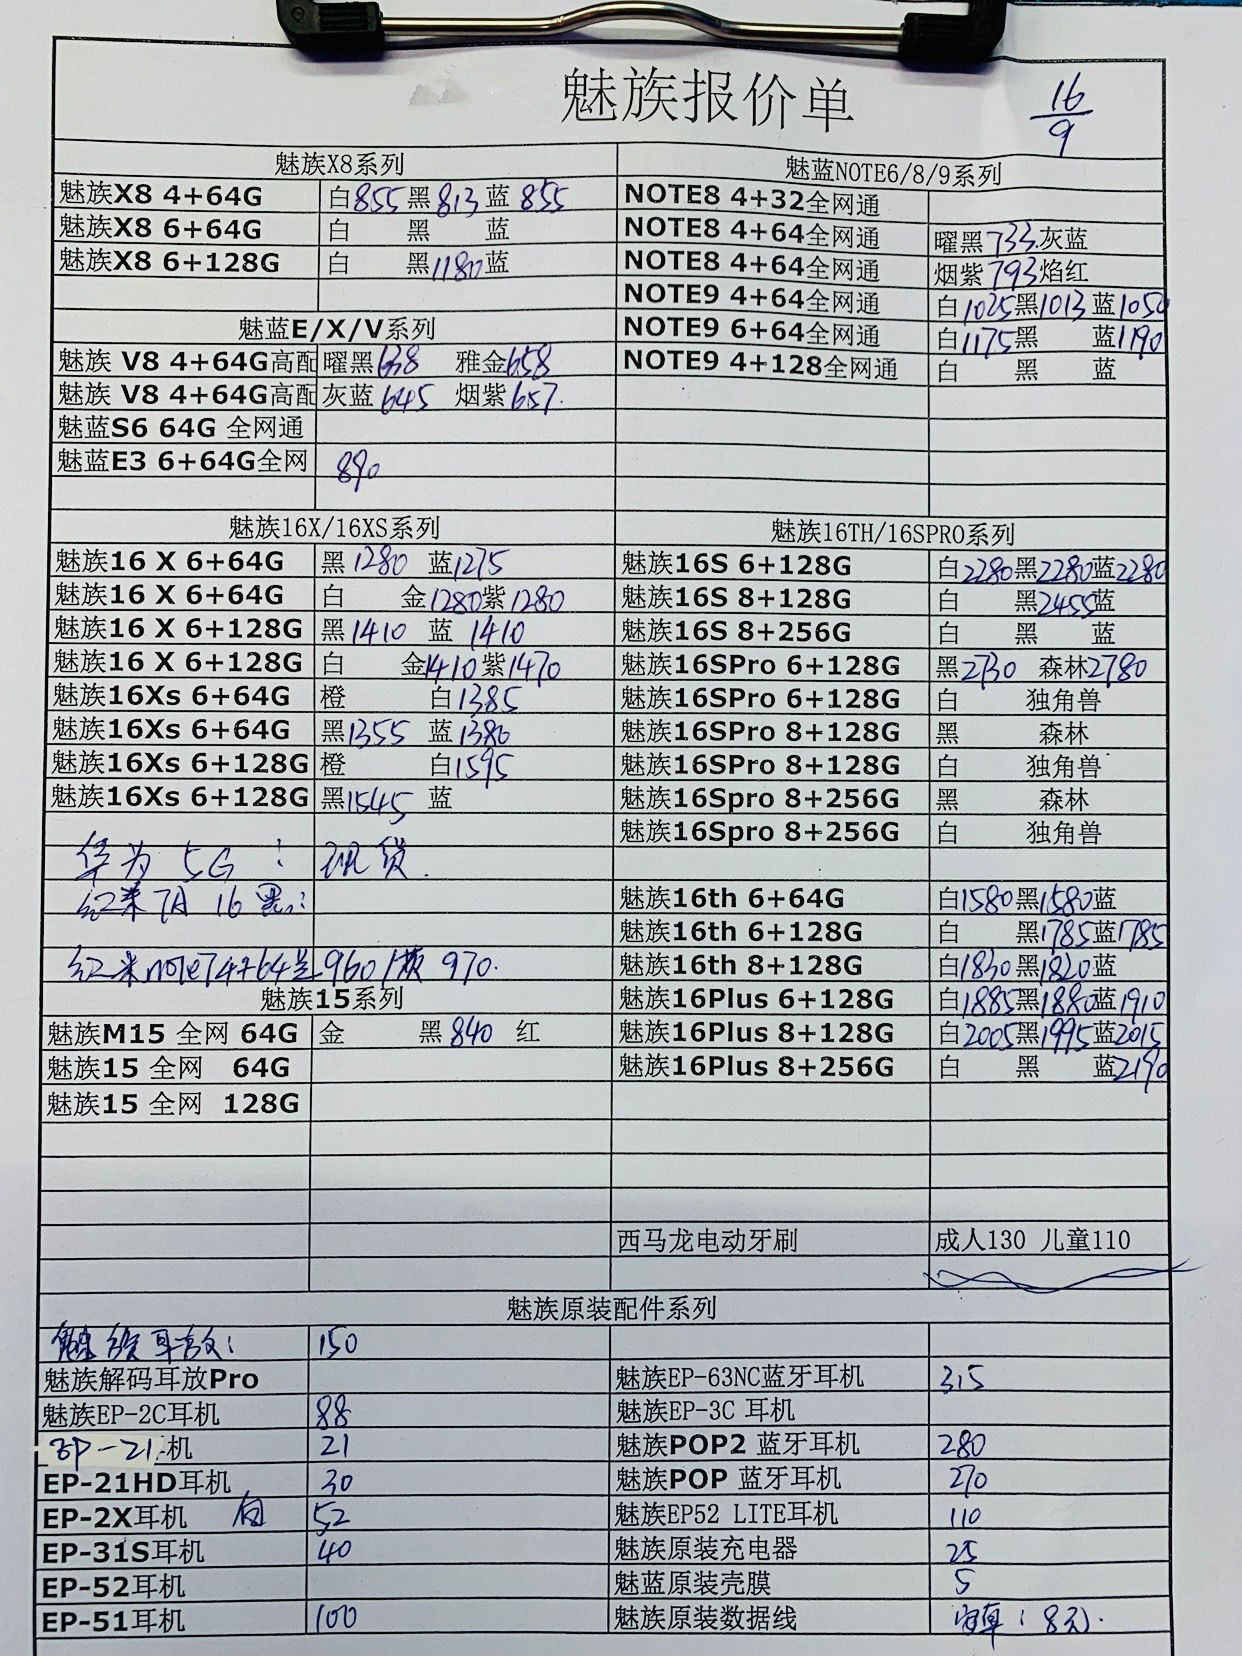 魅族报价单
16
9
魅族X8系列
魅族X8 4+64G 白855 黑813 蓝855
魅族X8 6+64G 白 黑 蓝
魅族X8 6+128G 白 黑1180 蓝
魅蓝E/X/V系列
魅族 V8 4+64G高配 曜黑638 雅金658
魅族 V8 4+64G高配 灰蓝645 烟紫657.
魅蓝S6 64G 全网通
魅蓝E3 6+64G全网 890
魅蓝NOTE6/8/9系列
NOTE8 4+32全网通
NOTE8 4+64全网通 曜黑733.灰蓝
NOTE8 4+64全网通 烟紫793焰红
NOTE9 4+64全网通 白1025黑1013 蓝1050
NOTE9 6+64全网通 白1175黑 蓝1190
NOTE9 4+128全网通 白 黑 蓝
魅族16X/16XS系列
魅族16 X 6+64G 黑1280 蓝1275
魅族16 X 6+64G 白 金1280紫1280
魅族16 X 6+128G 黑1410 蓝 1410
魅族16 X 6+128G 白 金1410紫1470
魅族16Xs 6+64G 橙 白1385
魅族16Xs 6+64G 黑1355 蓝1380
魅族16Xs 6+128G 橙 白1595
魅族16Xs 6+128G 黑1545 蓝
华为 5G : 现货.
红米7A 16 黑:
红米note7 4+64 960 970.
魅族15系列
魅族M15 全网 64G 金 黑840 红
魅族15 全网 64G
魅族15 全网 128G
魅族16TH/16SPRO系列
魅族16S 6+128G 白2280黑2280蓝2280
魅族16S 8+128G 白 黑2455蓝
魅族16S 8+256G 白 黑 蓝
魅族16SPro 6+128G 黑2730 森林2780
魅族16SPro 6+128G 白 独角兽
魅族16SPro 8+128G 黑 森林
魅族16SPro 8+128G 白 独角兽
魅族16Spro 8+256G 黑 森林
魅族16Spro 8+256G 白 独角兽
魅族16th 6+64G 白1580黑1580蓝
魅族16th 6+128G 白 黑1785蓝1785
魅族16th 8+128G 白1830黑1820蓝
魅族16Plus 6+128G 白1885黑1880蓝1910
魅族16Plus 8+128G 白2005黑1995蓝2015
魅族16Plus 8+256G 白 黑 蓝2190
西马龙电动牙刷 成人130 儿童110
魅族原装配件系列
150
魅族解码耳放Pro
魅族EP-2C耳机 88
EP-21 机 21
EP-21HD耳机 30
EP-2X耳机 白 52
EP-31S耳机 40
EP-52耳机
EP-51耳机 100
魅族EP-63NC蓝牙耳机 315
魅族EP-3C 耳机
魅族POP2 蓝牙耳机 280
魅族POP 蓝牙耳机 270
魅族EP52 LITE耳机 110
魅族原装充电器 25
魅蓝原装壳膜 5
魅族原装数据线 安卓:8元.